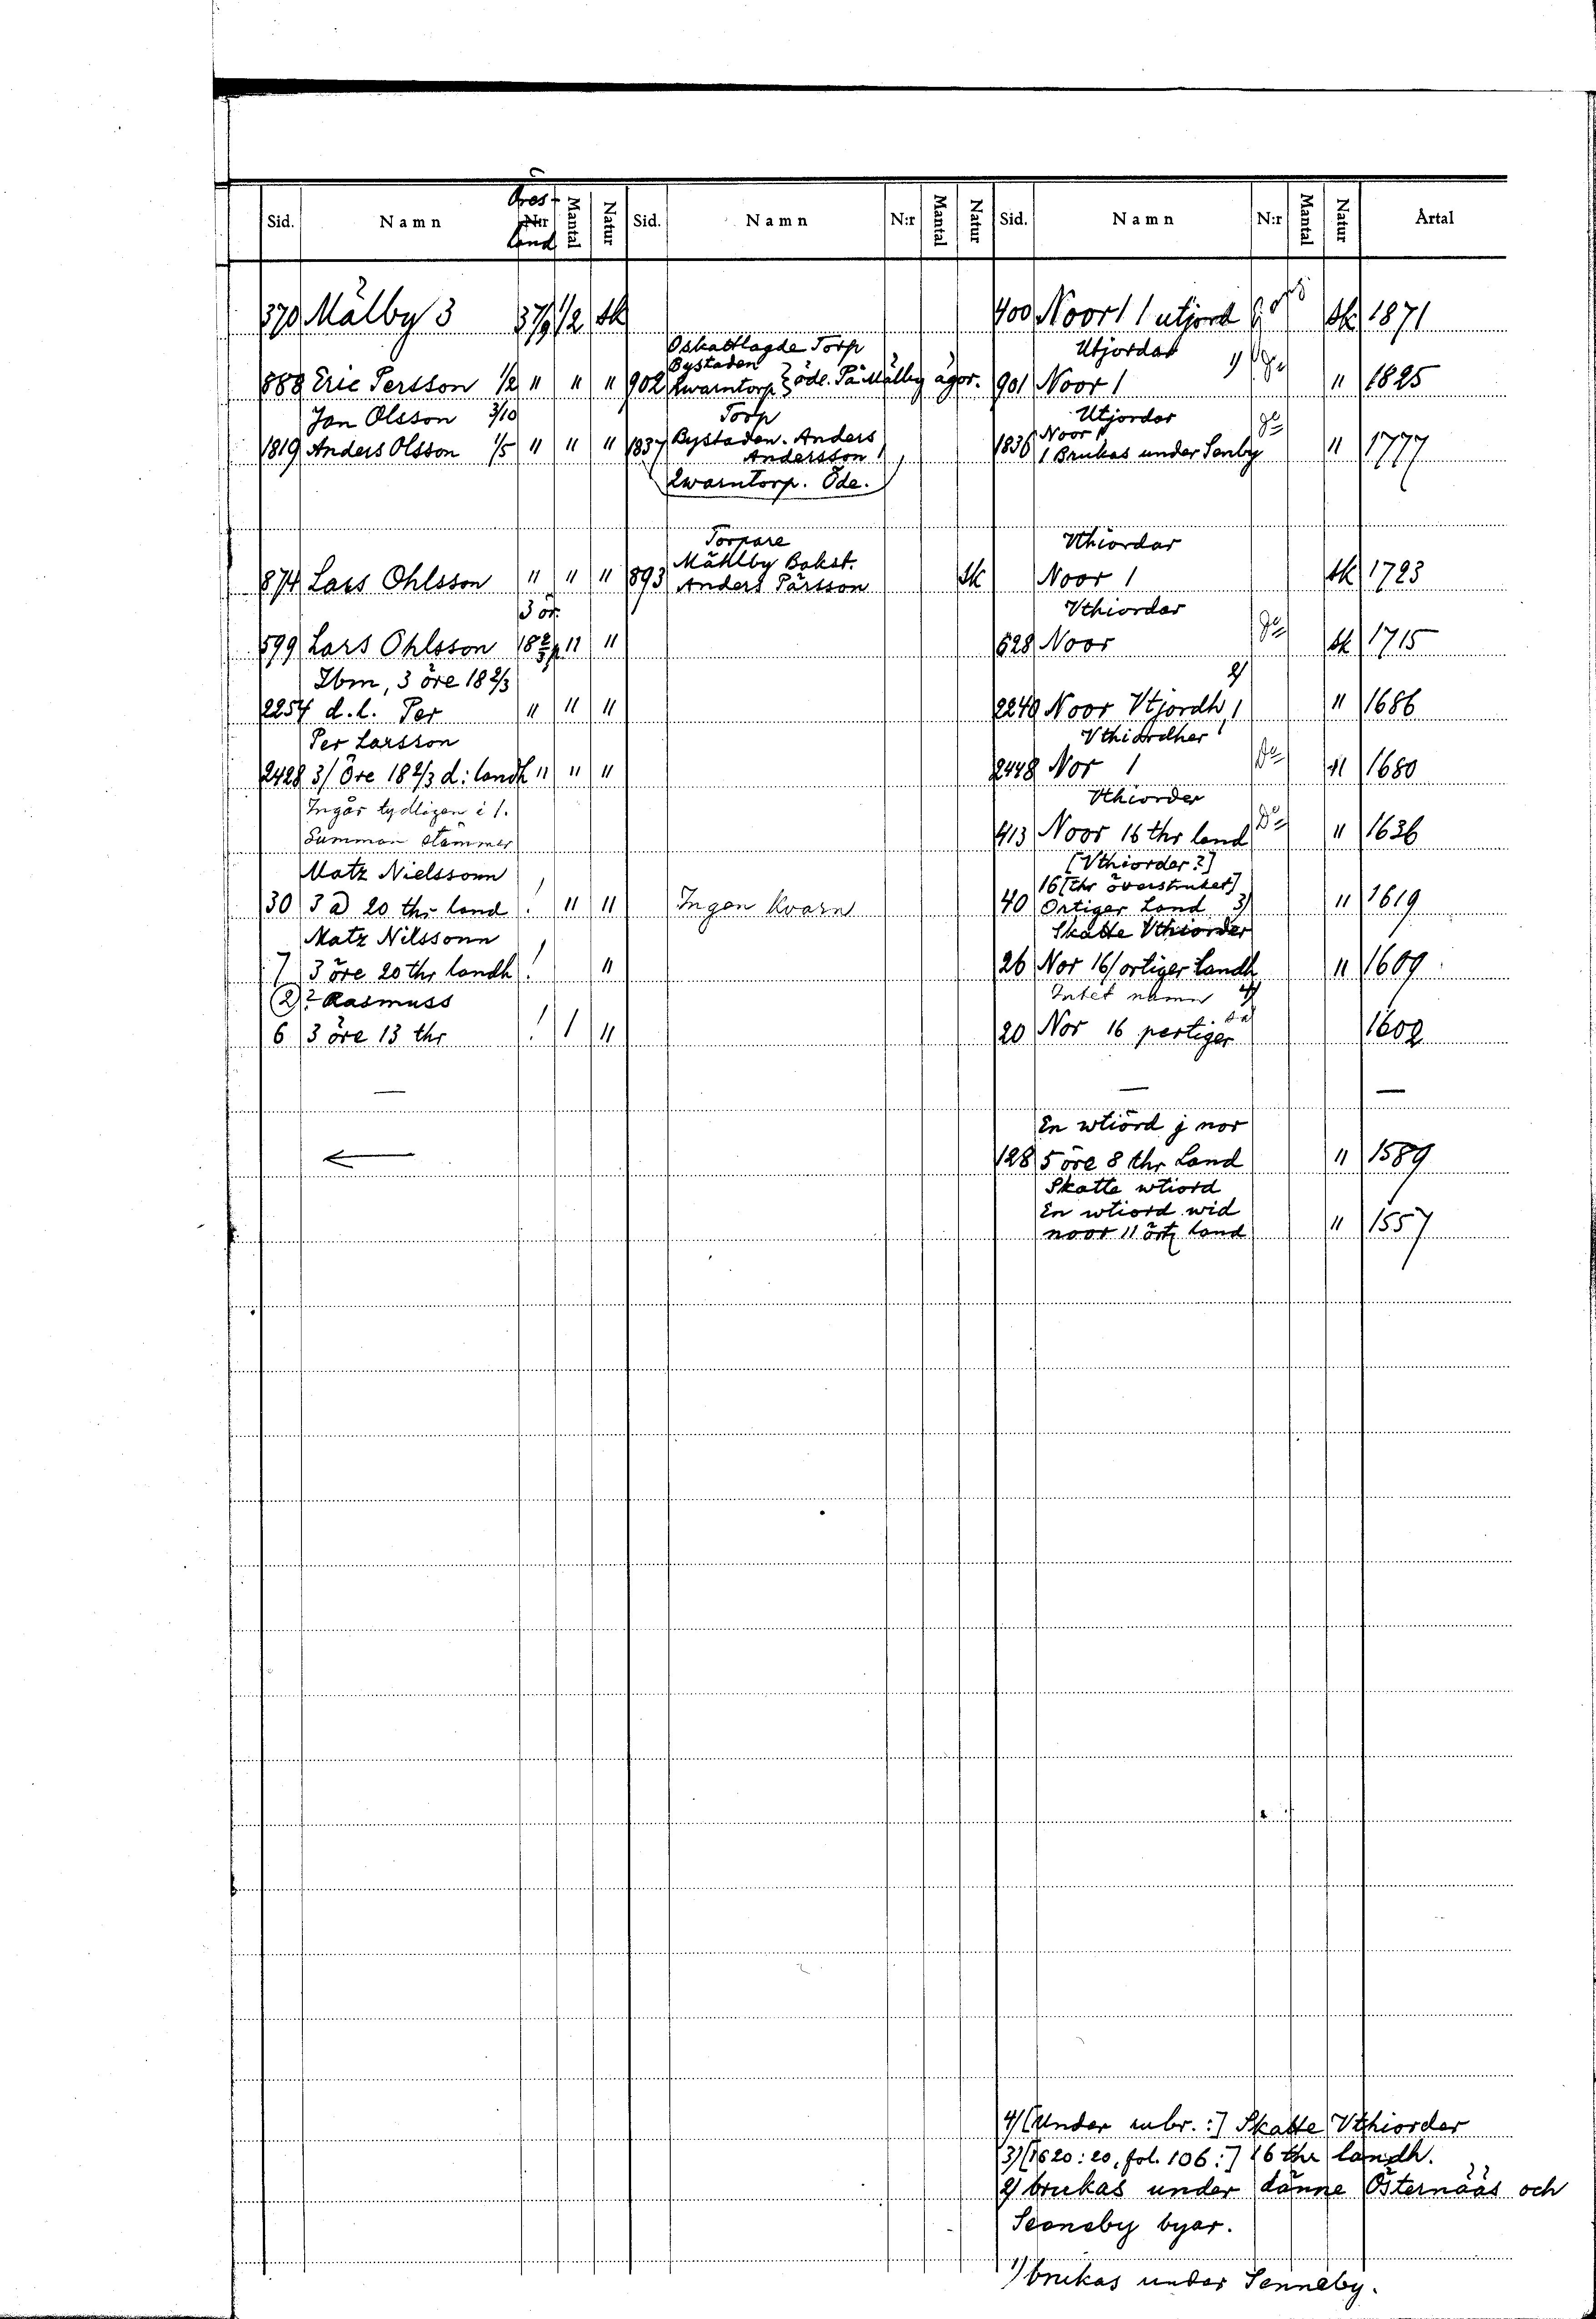 Sid. Namn Öres- N:r land Mantal Natur Sid. Namn N:r Mantal Natur Sid. Namn N:r Mantal Natur Årtal
370 Mälby 3 3 7/9 1/2 sk 400 Noor 1 1 utjord sk 1871
Oskattlagde Torp Utjordar
Bystaden
888 Eric Persson 1/2 " " " 902 Qwarntorp } öde. På Mälby ägor. 901 Noor 1 1) " 1825
Jan Olsson 3/10 Torp Utjordar
1819 Anders Olsson 1/5 " " " 1837 Bystaden. Anders Andersson 1836 Noor 1
1 Brukas under Senby " 1777
Qwarntorp. Öde.
Torpare Vthiordar
874 Lars Ohlsson " " " 893 Mählby Bakst. Anders Pärsson sk Noor 1 sk 1723
3 ör. Vthiordar
599 Lars Ohlsson 18 2/3 p " " 628 Noor sk 1715
Ibm, 3 öre 18 2/3 2)
2254 d. l. Per " " " 2240 Noor Vtjordh 1 " 1686
Per Larsson Vthiordher
2428 3/ Öre 18 2/3 d: landh " " " 2448 Nor 1 " 1680
Ingår tydligen i 1. Vthiorder
Summan stämmer 413 Noor 16 thr land " 1636
Matz Nielssonn [Vthiorder?]
16 [thr överstruket]
30 3 20 thr land ! " " Ingen kvarn 40 Örtiger Land 3) " 1619
Matz Nilssonn Skatte Vthiorder
7 3 öre 20 thr landh ! " 26 Nor 16/ ortiger landh " 1609
(2)? Rasmuss Intet namn 4)
6 3 öre 13 thr ! 1 " 20 Nor 16 pertiger 1602
— — —
En wtiörd j nor
← 128 5 öre 8 thr Land " 1589
Skatte wtiord
En wtiord wid
noor 11 örtz land " 1557
4) [Under rubr.:] Skatte Vthiorder
3) [1620:20, fol. 106:] 16 thr landh.
2) brukas under dänne Östernääs och
Seoneby byar.
1) brukas under Senneby.